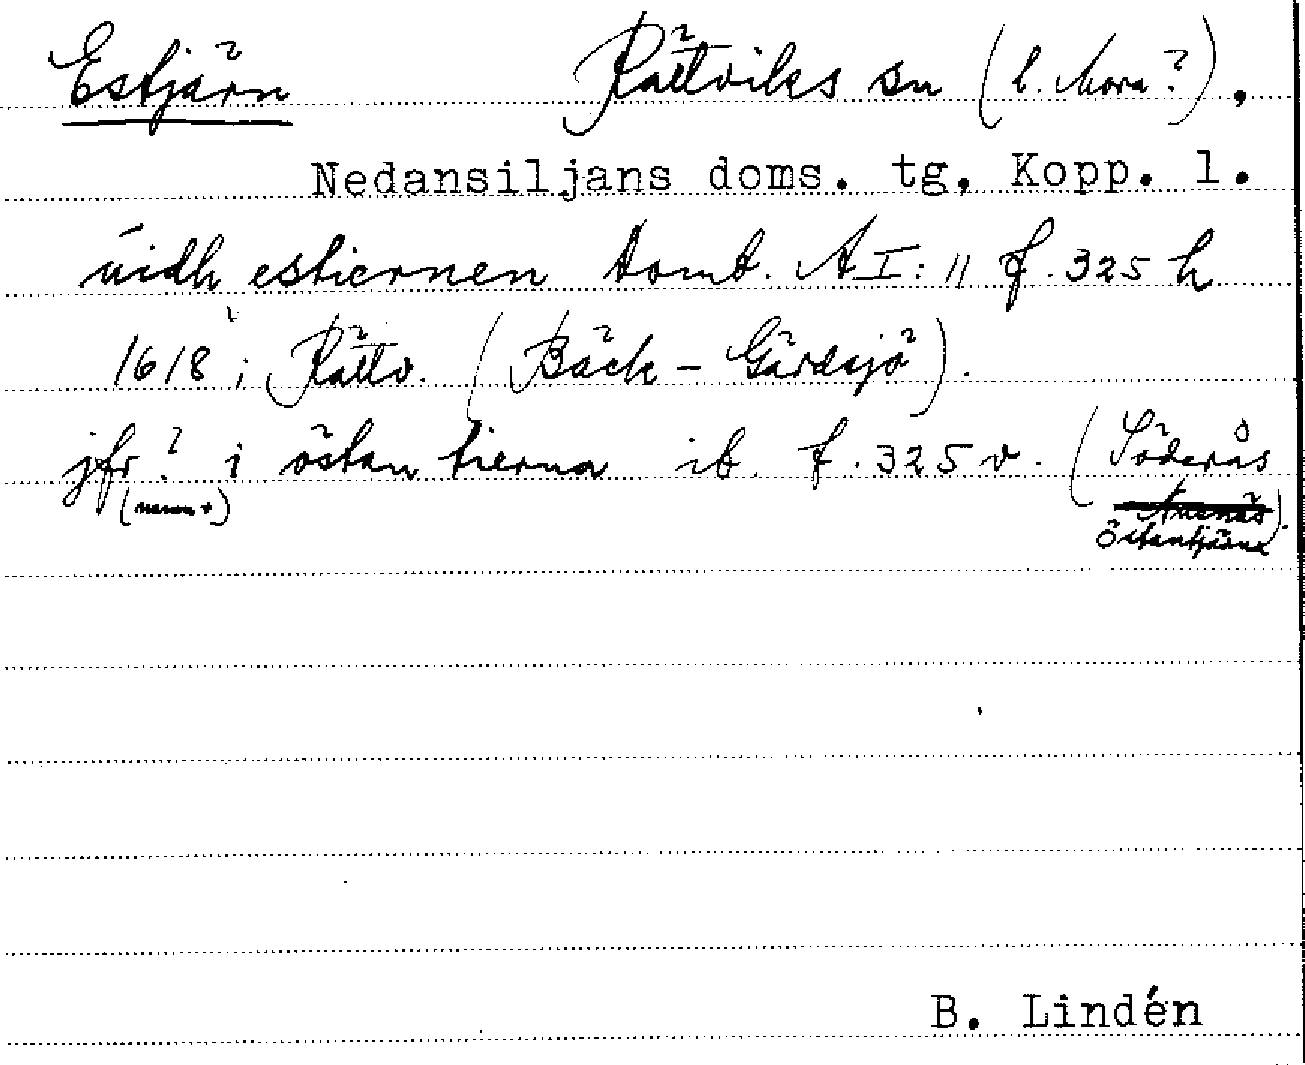 Estjärn Rättviks sn (l. Mora?).
Nedansiljans doms. tg, Kopp. l.
vidh estiernen tomt. A I: 11 f. 325 h
1618 i Rättv. (Bäck - Gärdsjö).
jfr? i östan tierna ib. f. 325 v. (Söderås
Östantjärna).
B. Lindén